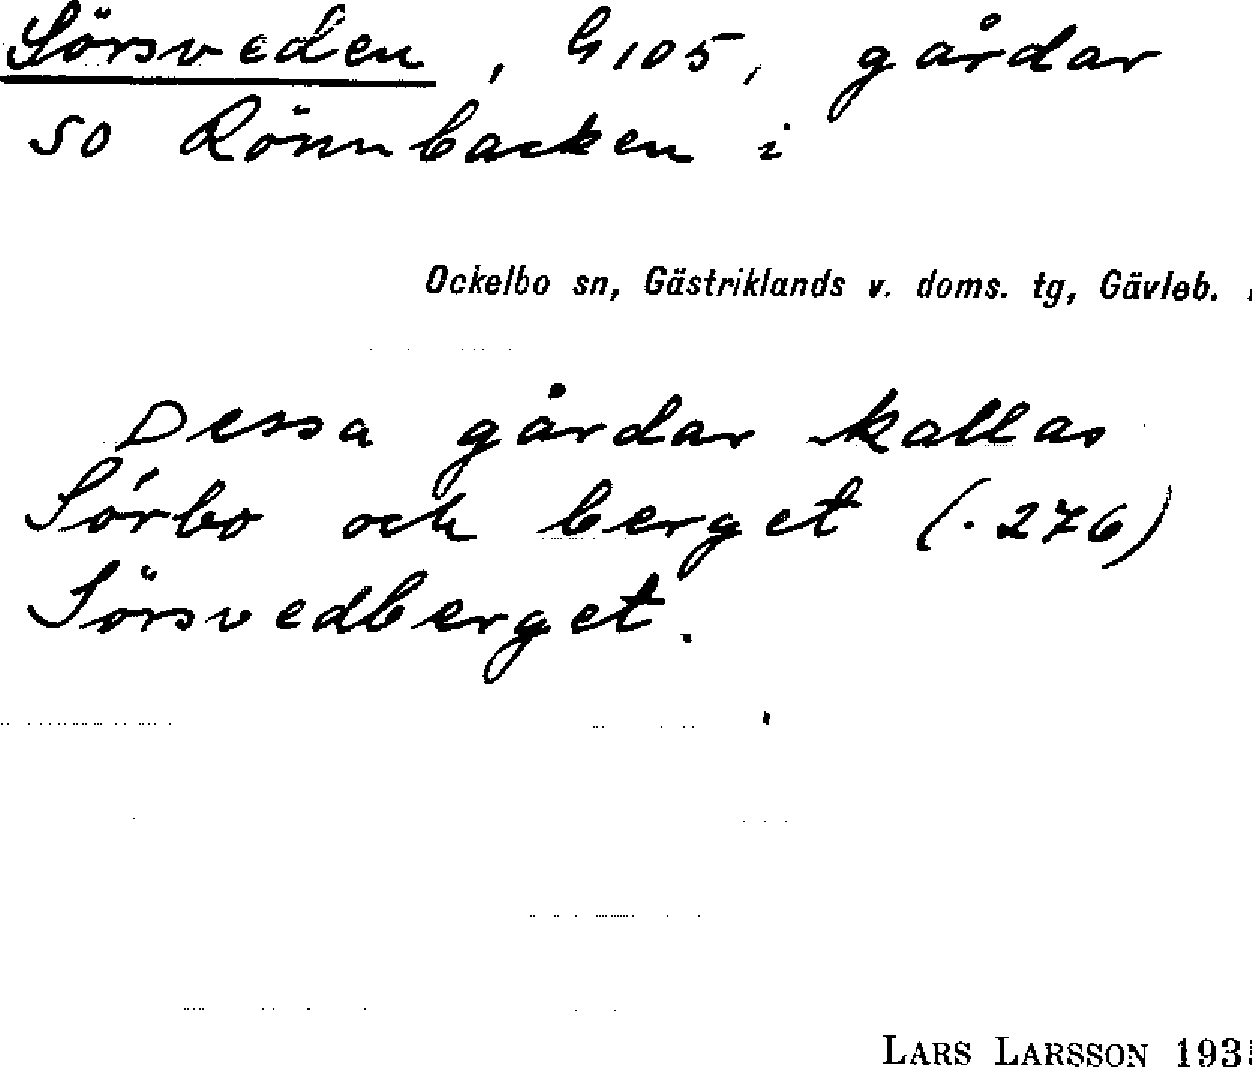 Sörsveden, h105, gårdar
SO Rönnbacken i
Ockelbo sn, Gästriklands v. doms. tg, Gävleb.
Dessa gårdar kallas
Sörbo och berget (.276)
Sörsvedberget.
LARS LARSSON 193